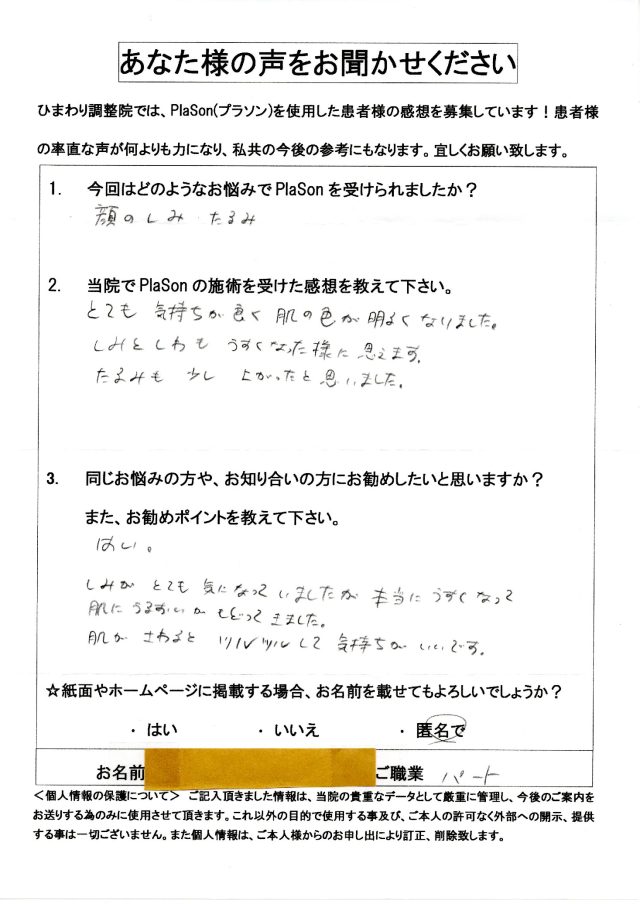 あなた様の声をお聞かせください
ひまわり調整院では、PlaSon(プラソン)を使用した患者様の感想を募集しています！患者様
の率直な声が何よりも力になり、私共の今後の参考にもなります。宜しくお願い致します。
1. 今回はどのようなお悩みでPlaSonを受けられましたか？
顔のしみ・たるみ
2. 当院でPlaSonの施術を受けた感想を教えて下さい。
とても 気持ちが良く 肌の色が 明るくなりました。
しみとしわも うすくなった様に 思えます。
たるみも 少し 上がったと思いました。
3. 同じお悩みの方や、お知り合いの方にお勧めしたいと思いますか？
また、お勧めポイントを教えて下さい。
はい。
しみが とても 気になって いましたが 本当に うすくなって
肌に うるおいが もどって きました。
肌が さわると ツルツルして 気持ちが いいです。
☆紙面やホームページに掲載する場合、お名前を載せてもよろしいでしょうか？
・はい ・いいえ ・匿名で
お名前 ご職業 パート
＜個人情報の保護について＞ ご記入頂きました情報は、当院の貴重なデータとして厳重に管理し、今後のご案内を
お送りする為のみに使用させて頂きます。これ以外の目的で使用する事及び、ご本人の許可なく外部への開示、提供
する事は一切ございません。また個人情報は、ご本人様からのお申し出により訂正、削除致します。